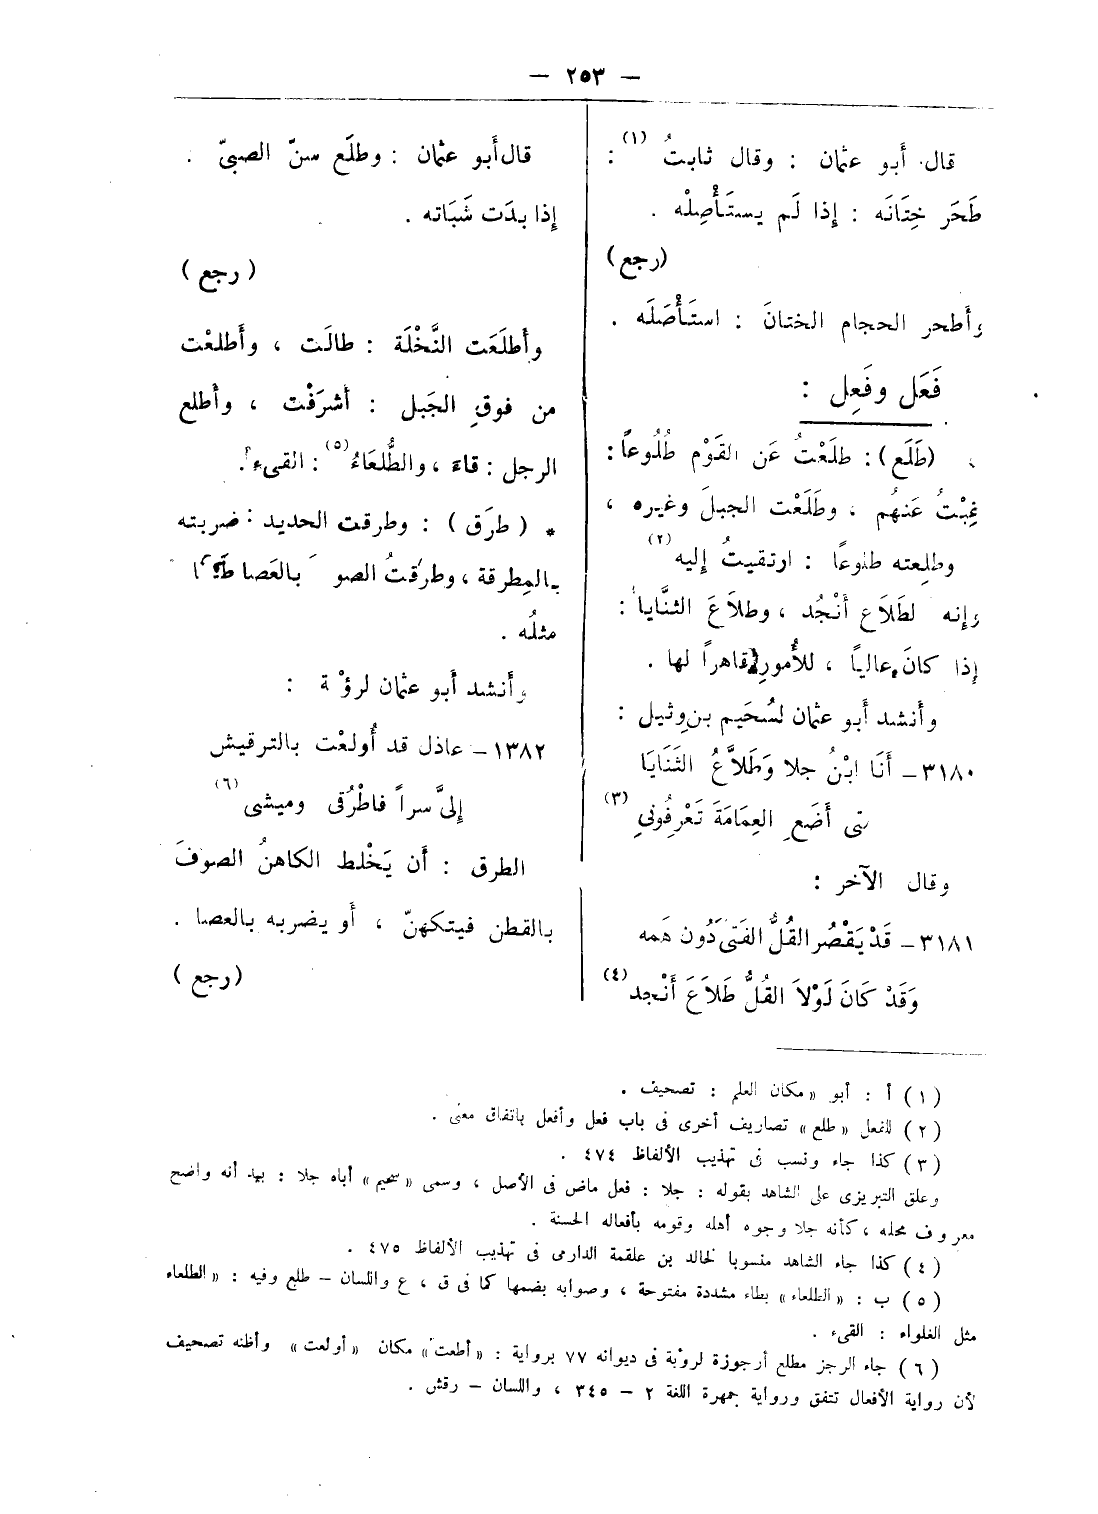 — ٢٥٣ —
قال أَبو عثمان : وقال ثابتُ (١) :
طَحَر خِتَانَه : إِذا لَم يستَأْصِلْه .
(رجع)
وأَطحر الحجام الختانَ : استَأْصَلَه .
فَعَل وفَعِل :
(طَلَع) : طلَعْتُ عَن القَوْم طُلُوعاً :
غِبْتُ عَنهُم ، وطَلَعْت الجبلَ وغيره ،
وطلِعته طلوعًا : ارتقيتُ إِليه (٢)
وإنه لطَلَاع أَنْجُد ، وطلاَعَ الثنَّايا :
إذا كانَ عالياً ، للأُمورِ قاهراً لها .
وأَنشد أَبو عثمان لسُحَيم بن وثيل :
٣١٨٠ – أَنَا ابْنُ جلا وَطَلاَّعُ الثَنَايَا
تى أَضَع العِمَامَةَ تَعْرِفُونىِ (٣)
وقال الآخر :
٣١٨١ – قَدْ يَقْصُر القُلُّ الفَتَى دُون هَمه
وَقَدْ كَانَ لَوْلاَ القُلُّ طَلاَعَ أَنْجد (٤)
قال أَبو عثمان : وطلَع سنّ الصبىّ .
إِذا بدَت شَبَاته .
(رجع)
وأَطلَعَت النَّخْلَة : طالَت ، وأَطلعْت
من فوقِ الجَبل : أَشرَفْت ، وأَطلع
الرجل : قاءَ ، والطُّلعَاءُ (٥) : القىء .
* (طرَق) : وطرقت الحديد : ضربته
بالمِطرقة ، وطرَقتُ الصو بالعَصا
مثلُه .
وأَنشد أَبو عثمان لرؤْ ة :
١٣٨٢ – عاذل قد أُولعْت بالترقيش
إِلىَّ سراً فاطْرُقى وميشى (٦)
الطرق : أَن يَخْلط الكاهنُ الصوفَ
بالقطن فيتكهنّ ، أَو يضربه بالعصا .
(رجع)
(١) أ : أبو « مكان العلم : تصحيف .
(٢) للفعل « طلع » تصاريف أخرى فى باب فعل وأفعل باتفاق معنى .
(٣) كذا جاء ونسب فى تهذيب الألفاظ ٤٧٤ .
وعلق التبريزى على الشاهد بقوله : جلا : فعل ماض فى الأصل ، وسمى « سحيم » أباه جلا : بيد أنه واضح
معروف محله ، كأنه جلا وجوه أهله وقومه بأفعاله الحسنة .
(٤) كذا جاء الشاهد منسوبا لخالد بن علقمة الدارمى فى تهذيب الألفاظ ٤٧٥ .
(٥) ب : « الطلعاء » بطاء مشددة مفتوحة ، وصوابه بضمها كما فى ق ، ع واللسان – طلع وفيه : « الطلعاء
مثل الغلواء : القىء .
(٦) جاء الرجز مطلع أرجوزة لرؤبة فى ديوانه ٧٧ برواية : « أطعت » مكان « أولعت » وأظنه تصحيف
لأن رواية الأفعال تتفق ورواية جمهرة اللغة ٢ – ٣٤٥ ، واللسان – رقش .